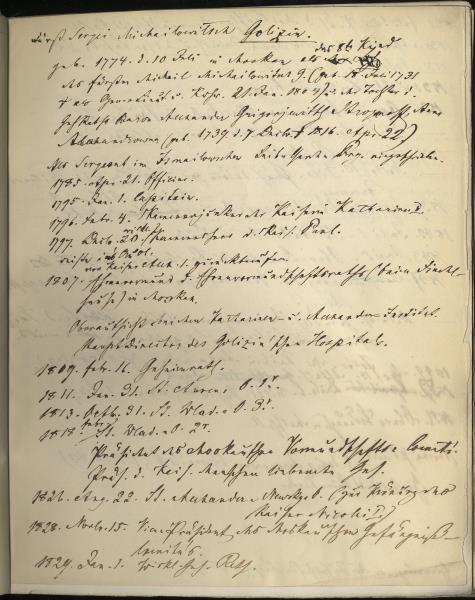 Fürst Sergei Michailowitsch Golizin.
geb. 1774. d. 10 Juli in Moskau als das 8te Kind
des Fürsten Michail Michailowitsch G. (geb. 1731
† als 21. Jan. 1804) u. der Tochter d.
Baron Alexander Grigorjewitsch Stroganoff, Anna
Alexandrowna (geb. 1739. d. 7 † 1816. Apr. 22)
Als Sergeant im Ismailowschen Leib Garde Reg. eingeschrieben.
1785. Apr. 21. Officier.
1795. Jan. 1. Capitain.
1796. Febr. 4. Kammerjunker der Kaiserin Katharina II.
1797. 20. Kammerherr d. Kais. Paul.
reiste ins Ausl.
von Kaiser Alex. I. zurückberufen.
1807. Ehrenvormund d. Ehrenvormundschaftsraths (beim Findel-
hause) in Moskau.
Oberaufsicht Katharinen- u. Alexander-Institut.
Hauptdirector des Golizin'schen Hospitals.
1809. Febr. 16. Geheimrath.
1811. Jan. 31. St. Annen O. 1r.
1813. Octb. 31. St. Wlad. O. 3r.
1818. St. Wlad. O. 2r.
Präsident des Moskauschen Vormundschafts-Comité.
Präs. d. Kais. Menschen liebenden Ges.
1826. Aug. 22. St. Alexander-Newsky O. (zur Krönung des
Kaiser Nicolai I.)
1828. Novbr. 15. Vicepräsident des Moskauschen Gefängniß-
Comités.
1829. Jan. 1. Wirkl. Geh. Rath.